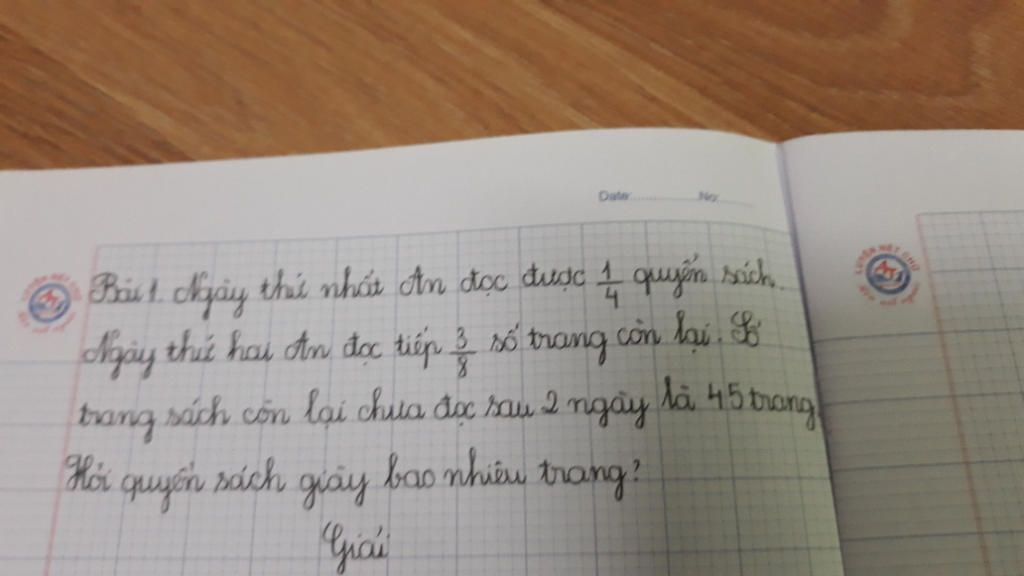 Date:............No:.........
Bài 1. Ngày thứ nhất An đọc được 1/4 quyển sách.
Ngày thứ hai An đọc tiếp 3/8 số trang còn lại. Số
trang sách còn lại chưa đọc sau 2 ngày là 45 trang.
Hỏi quyển sách giày bao nhiêu trang?
Giải